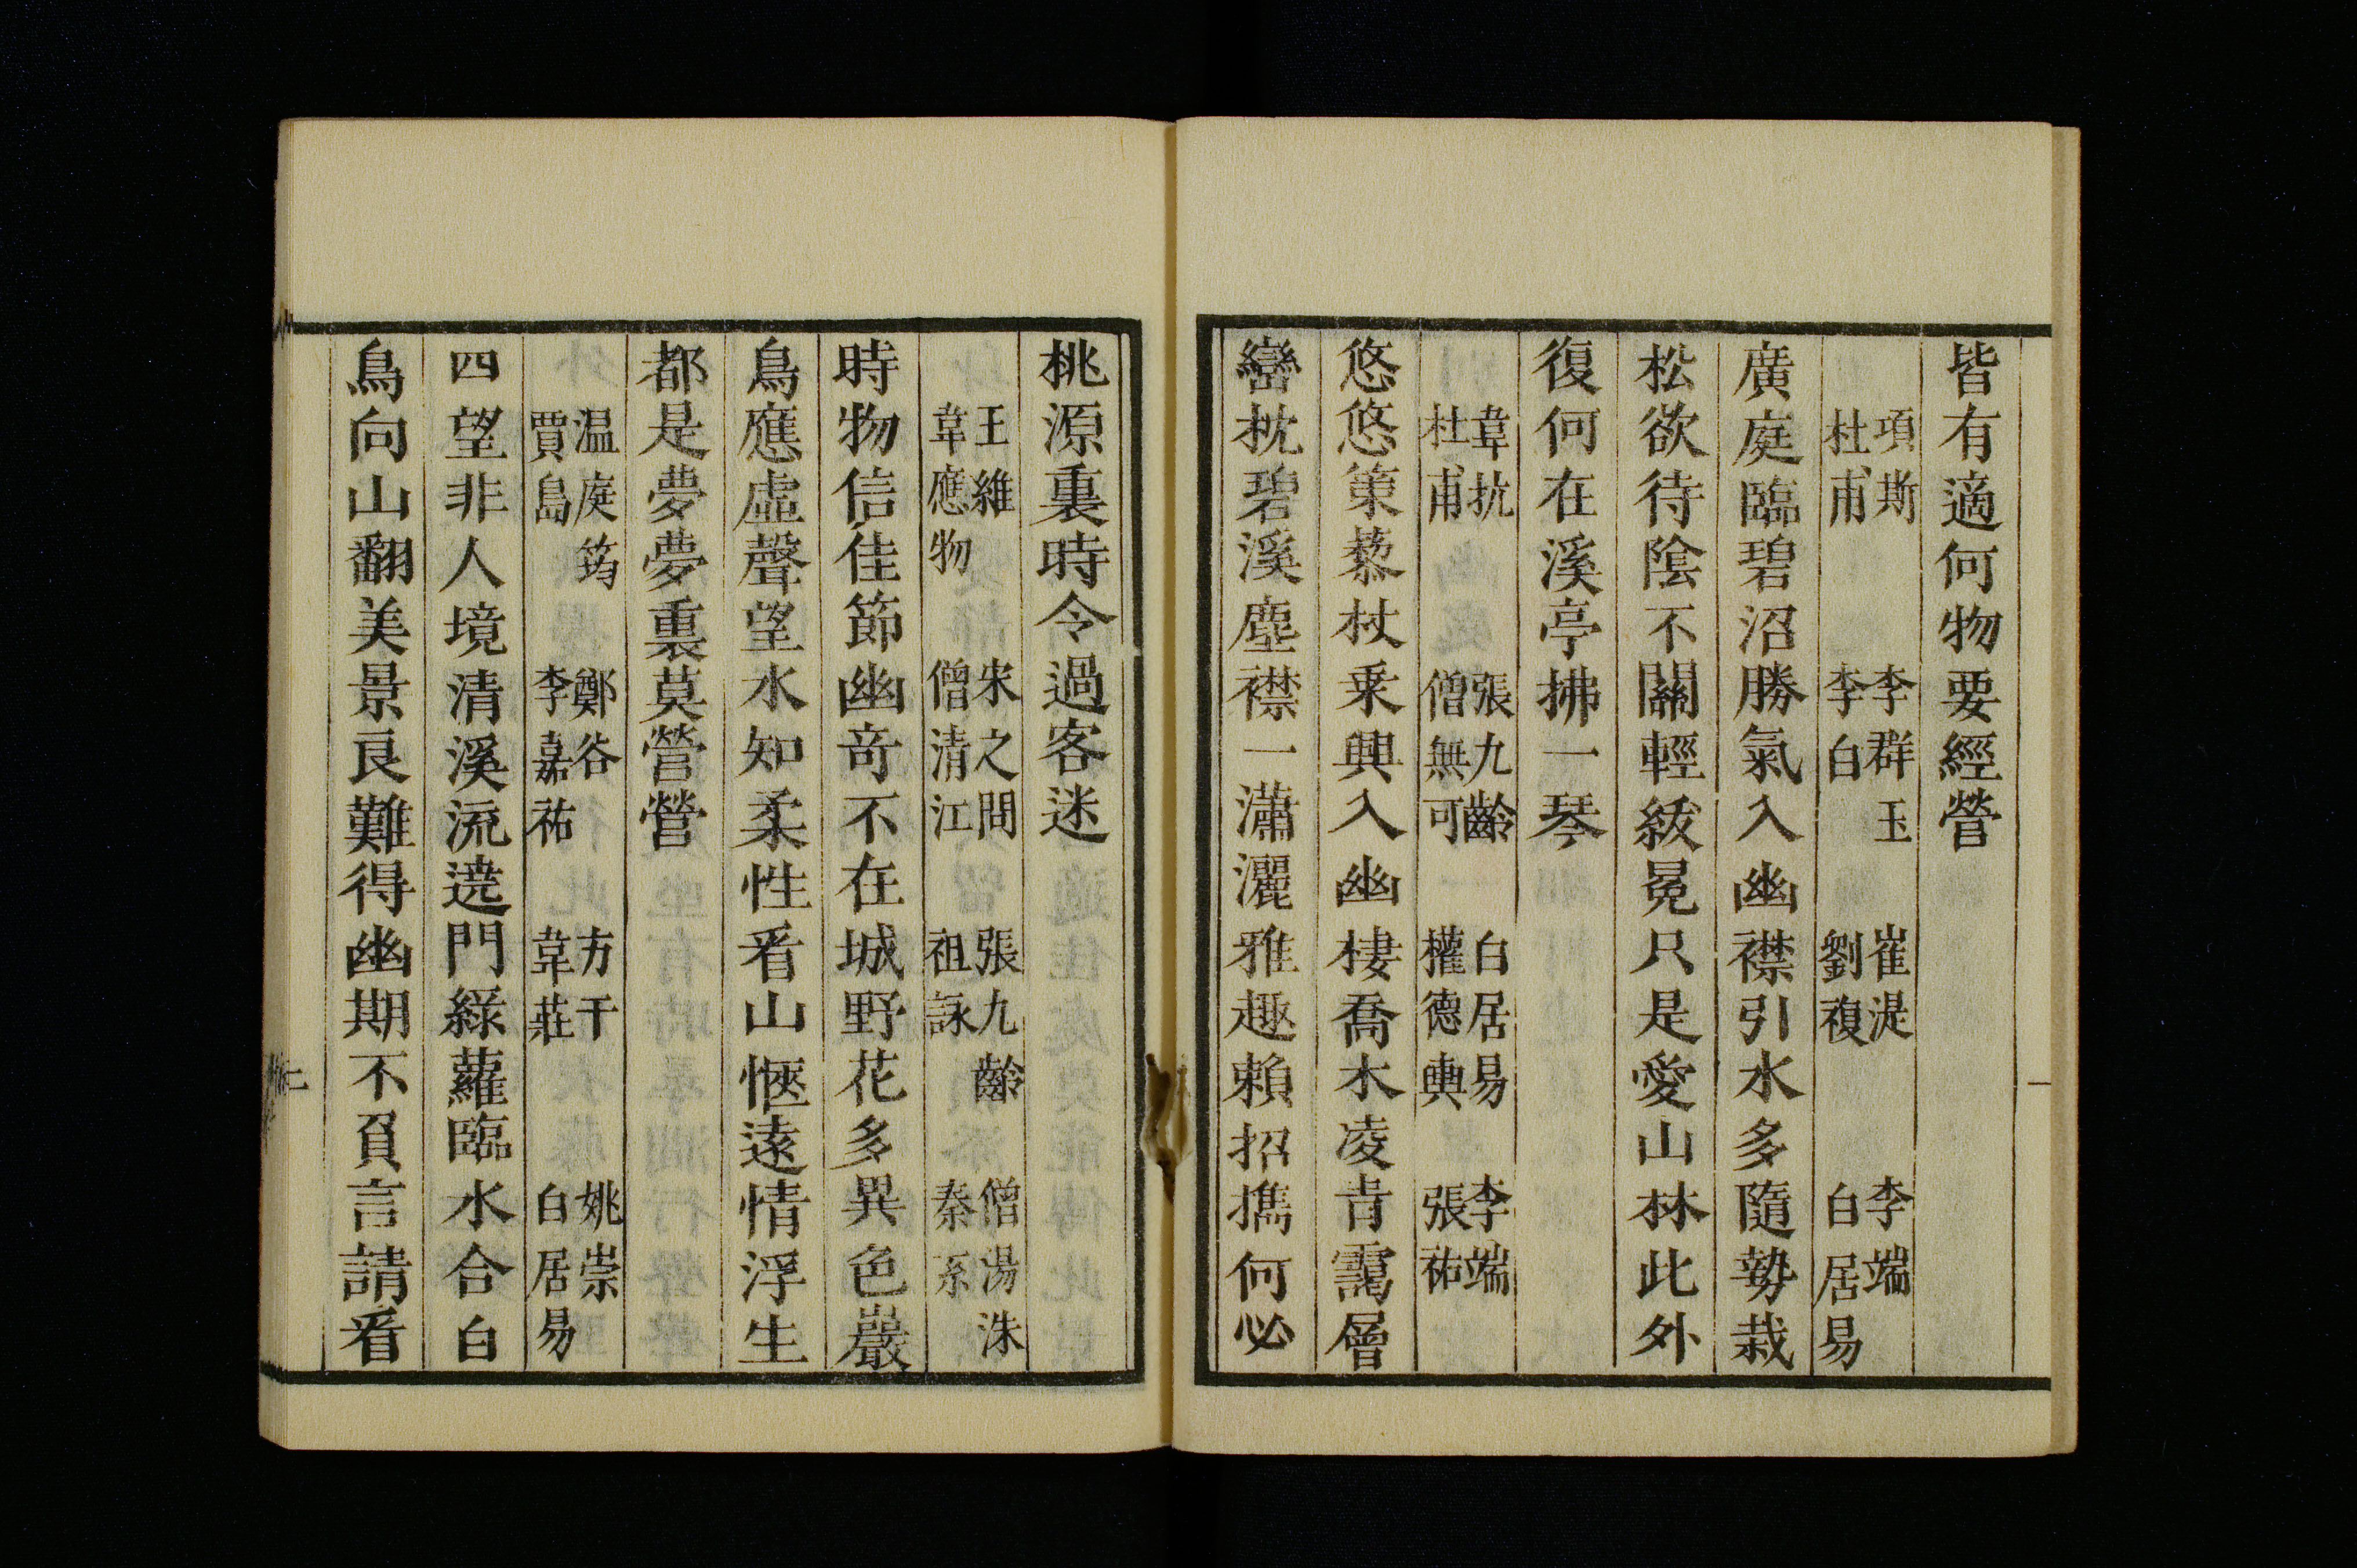 皆有適何物要經營
項斯 李群玉 崔湜 李端
杜甫 李白 劉複 白居易
廣庭臨碧沼勝氣入幽襟引水多隨勢栽
松欲待陰不關輕紱冕只是愛山林此外
復何在溪亭拂一琴
韋抗 張九齡 白居易 李端
杜甫 僧無可 權德輿 張祐
悠悠策藜杖乗興入幽棲喬木凌青靄層
巒枕碧溪塵襟一瀟灑雅趣賴招擕何必
一
桃源裏時令過客迷
王維 宋之問 張九齡 僧湯洙
韋應物 僧清江 祖詠 秦系
時物信佳節幽竒不在城野花多異色巖
鳥應虛聲望水知柔性看山愜遠情浮生
都是夢夢裏莫營營
温庭筠 鄭谷 方干 姚崇
賈島 李嘉祐 韋莊 白居易
四望非人境清溪流遶門綠蘿臨水合白
鳥向山翻美景良難得幽期不負言請看
二